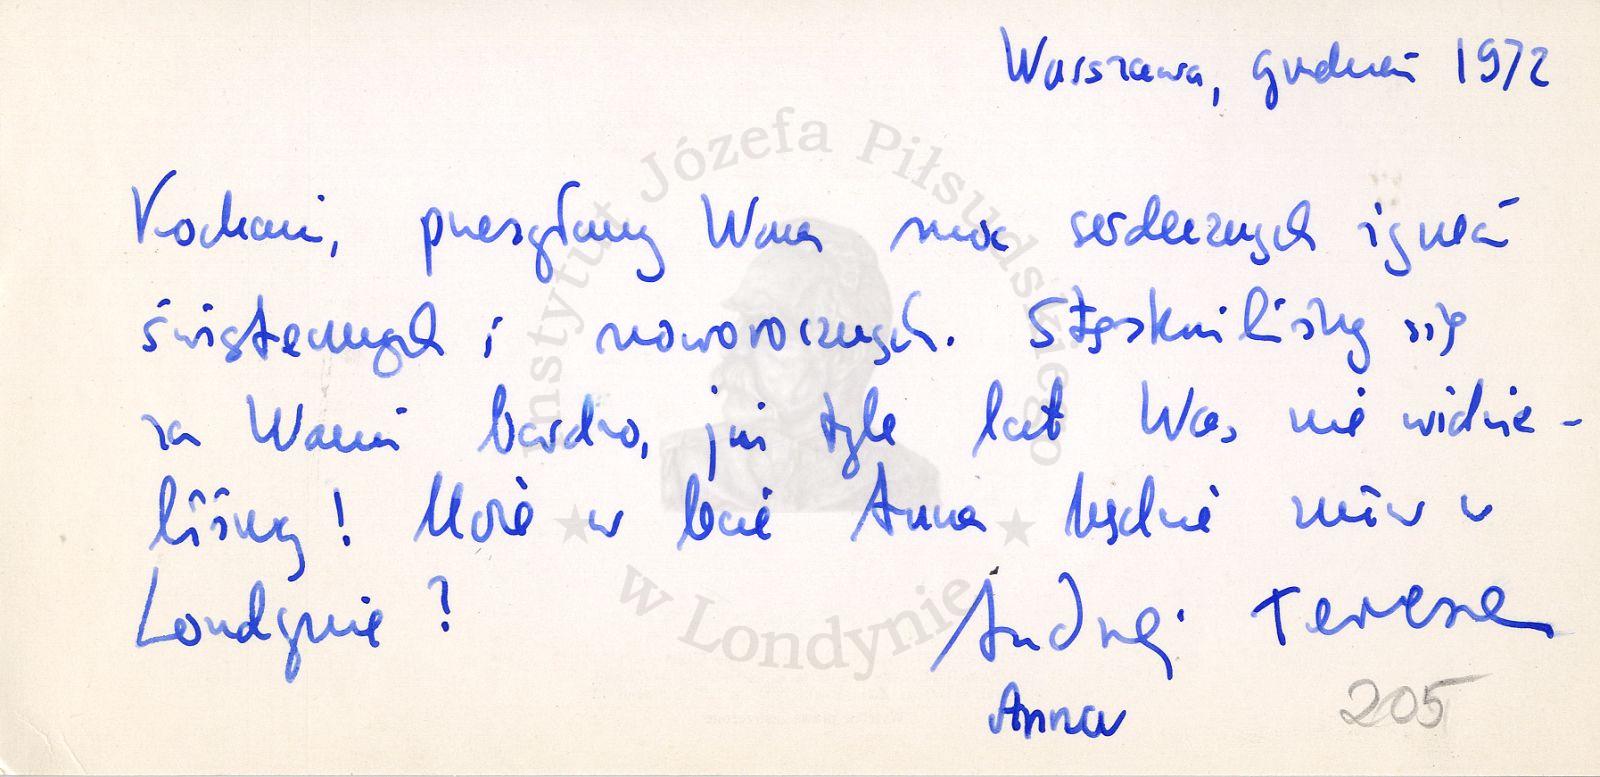 Warszawa, grudzień 1972
Kochani, przesyłamy Wam moc serdecznych życzeń
świątecznych i noworocznych. Stęskniliśmy się
za Wami bardzo, już tyle lat Was nie widzie-
liśmy! Może w lecie Anna będzie znów w
Londynie?
Andrzej Teresa
Anna
205
Instytut Józefa Piłsudskiego
w Londynie